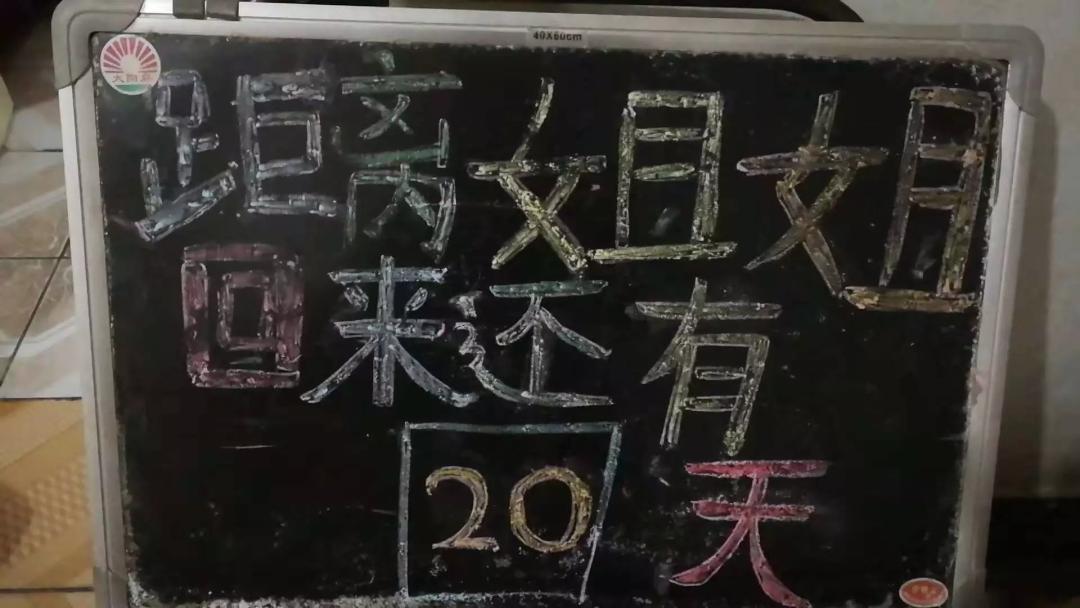 40X60cm
距离姐姐
回来还有
20 天